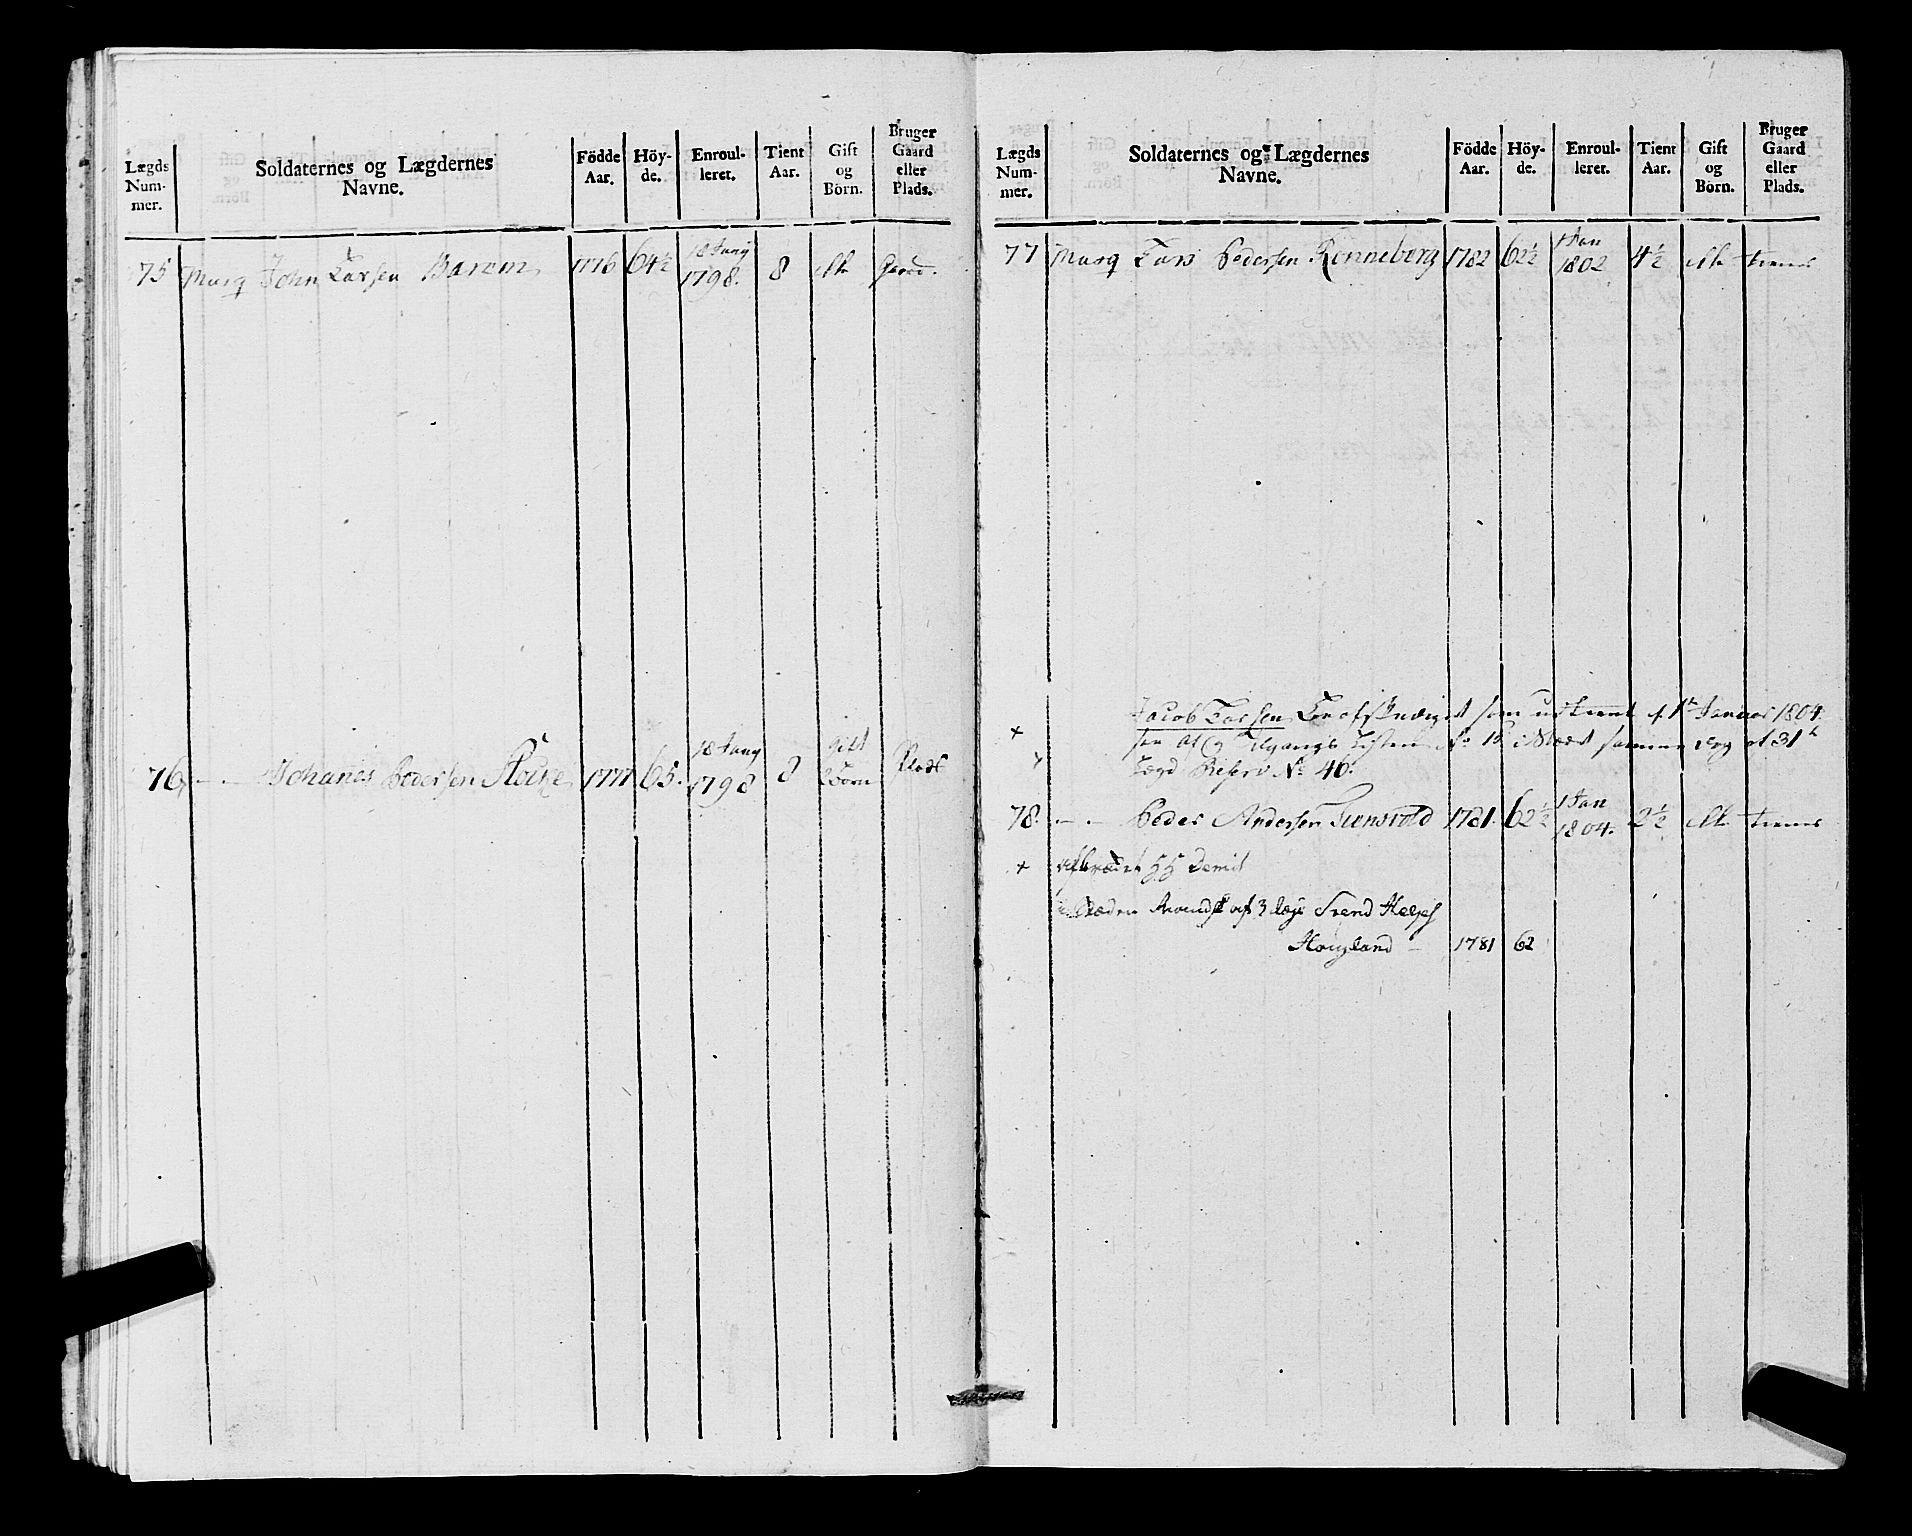 Lægds Num- mer.
Soldaternes og Lægdernes Navne.
Födde Aar.
Höy- de.
Enroul- leret.
Tient Aar.
Gift og Börn.
Bruger Gaard eller Plads.
75 Musq John Larsen Barem 1776 64½ 18 Juny 1798. 8 Gaard.
76 — — Johanes Pedersen 1777 65. 18 Juny 1798 8 gift 2 Börn Plads
Lægds Num- mer.
Soldaternes og Lægdernes Navne.
Födde Aar.
Höy- de.
Enroul- leret.
Tient Aar.
Gift og Börn.
Bruger Gaard eller Plads.
77 Musq Lars Pedersen Rönneberg 1782 62½ 1 Jan 1802 4½ tiener
Jacob Larsen som udtient d 1te Januar 1804.
See Af og Tilgangs Listen No 15 samme dag af 31te
Lægd Reserv No 46.
78. — — Peder Andersen 1781. 62½ 1 Jan 1804. 2½ tiener
af 3 læg Svend
Hougland — 1781 62